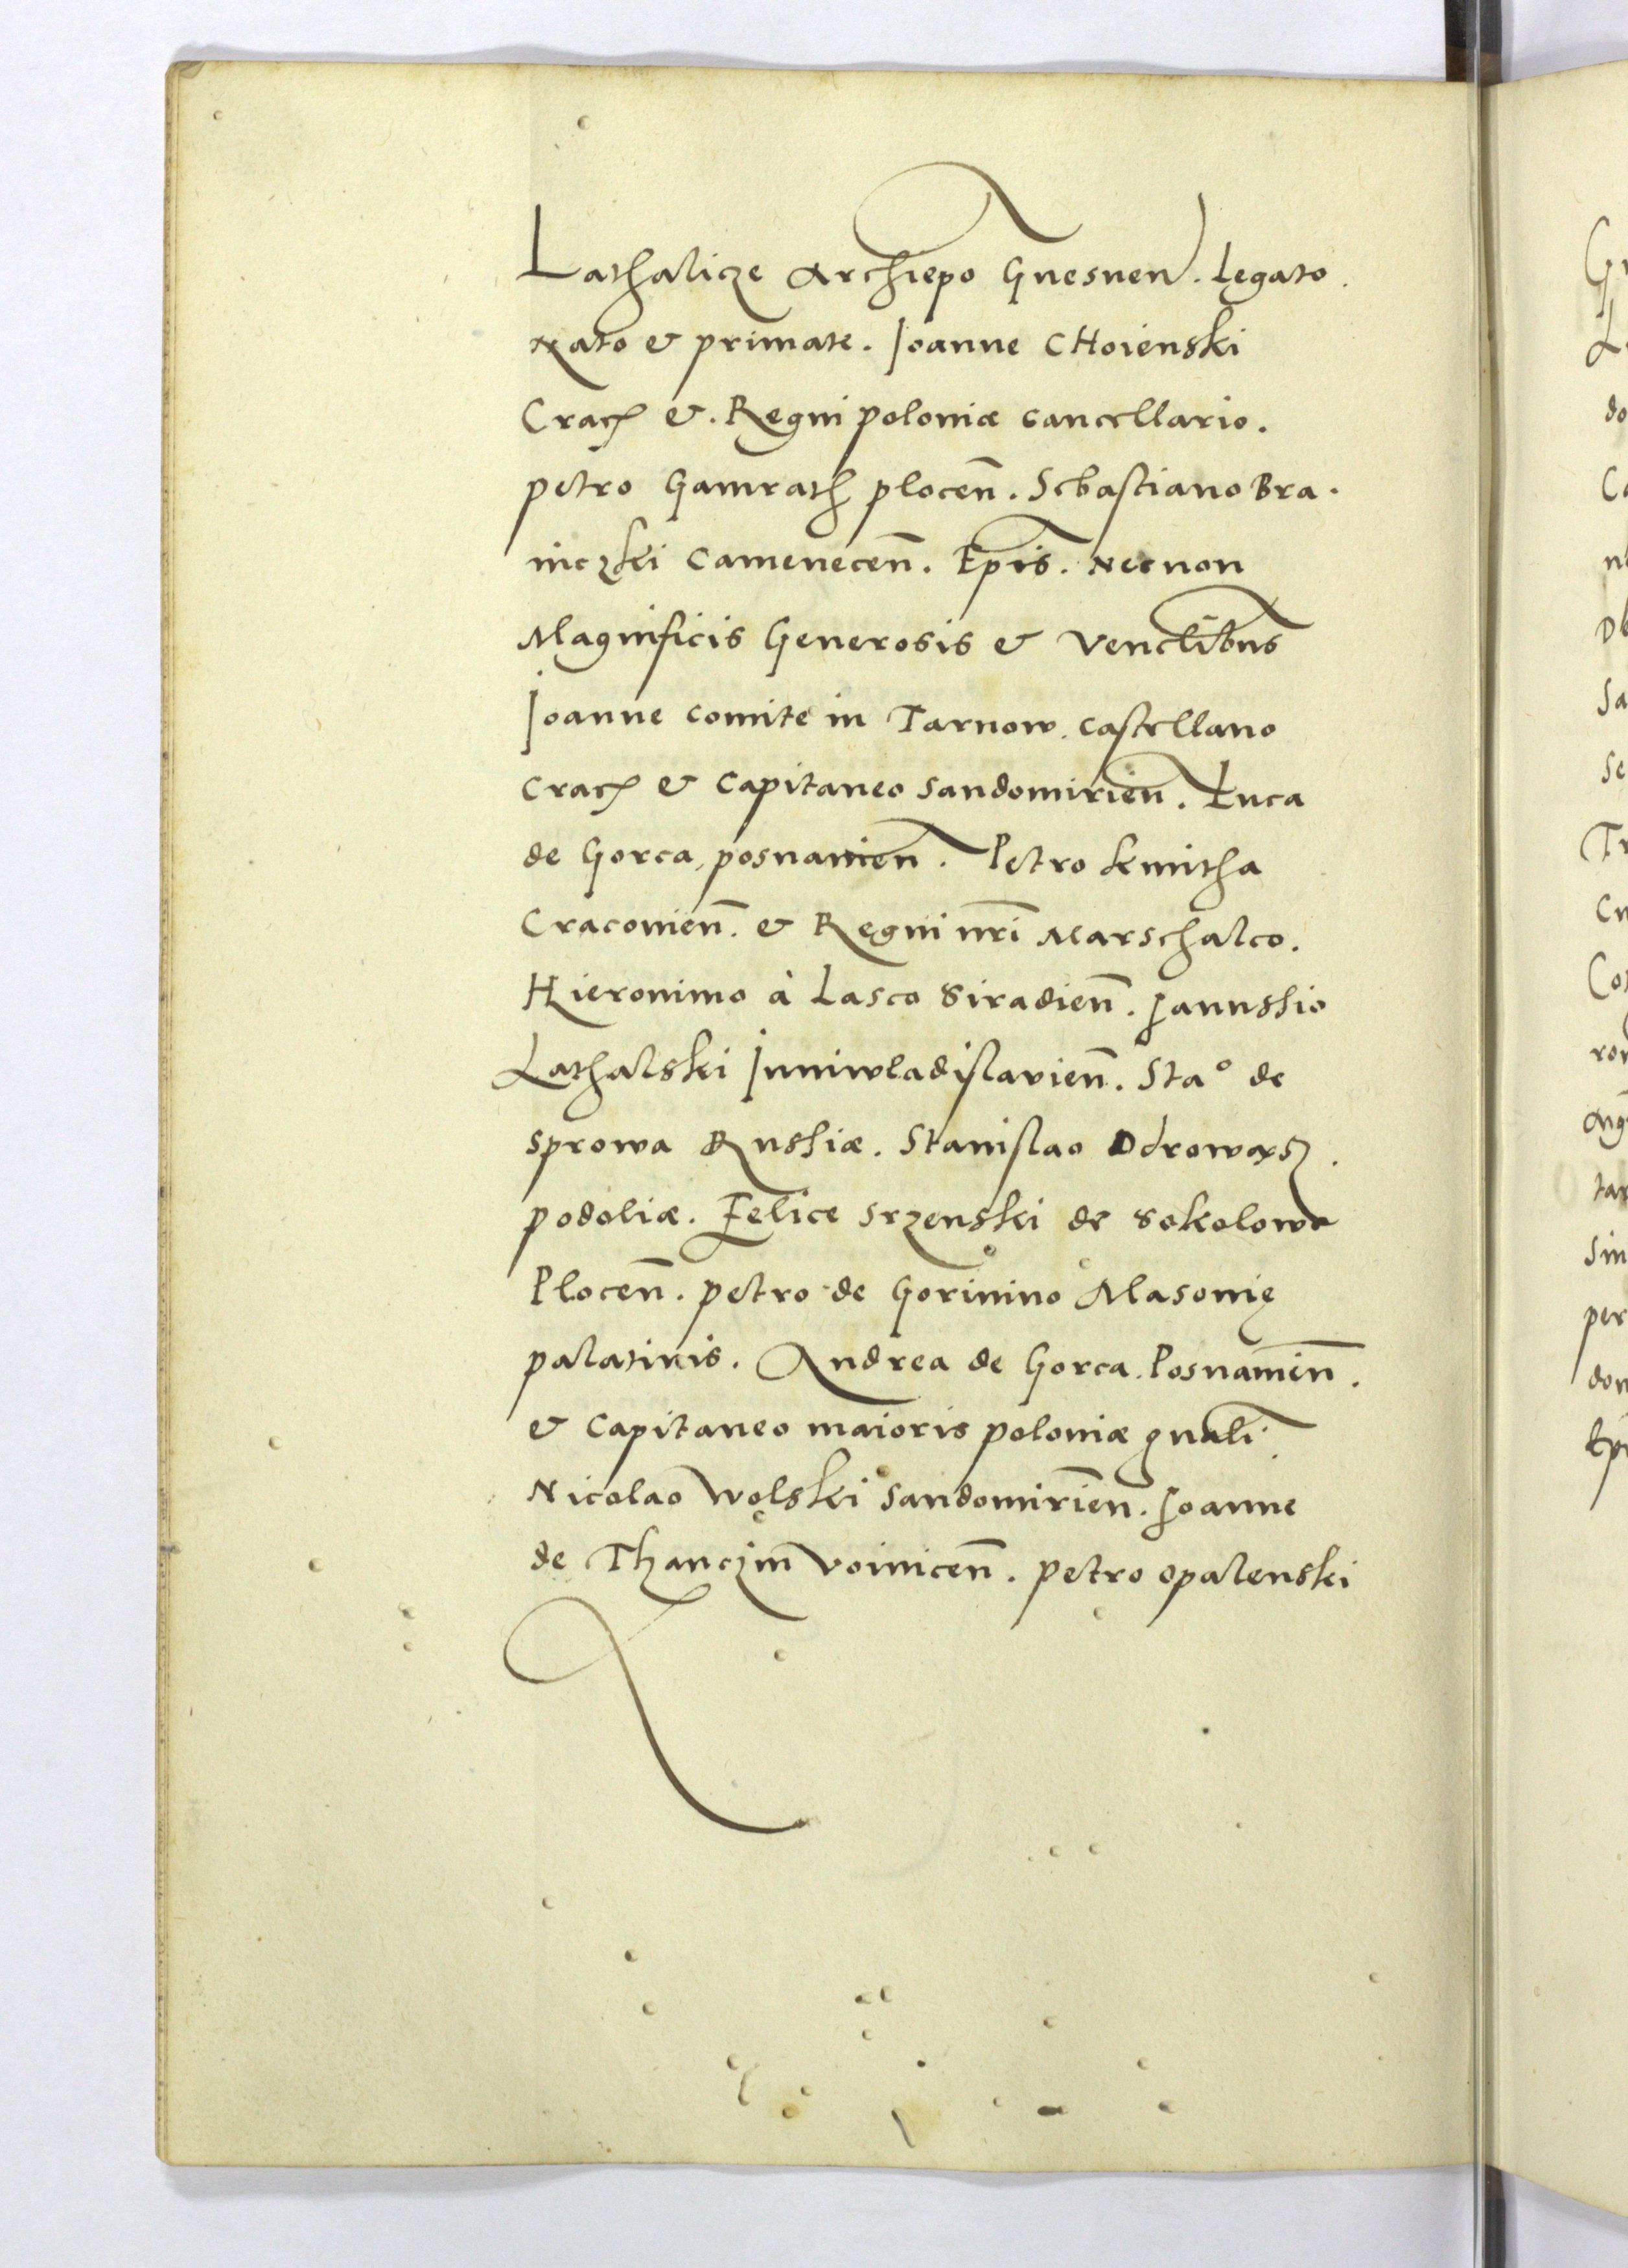 Lathalicze Archiepo Gnesnen. Legato
Nato & primate. Joanne CHoienski
Crac̄ & Regni poloniæ cancellario.
petro Gamrath plocen̄. Sebastiano Bra-
niczki Camenecen̄. Ep̄is. Necnon
Magnificis Generosis & Venclibus
Joanne comite in Tarnow. castellano
Crac̄ & Capitaneo Sandomirien̄. Luca
de Gorca, posnanien̄. Petro kmitha
Craconien̄. & Regni nr̄i Marschalco.
Hieronimo à Lasco Siradien̄. Janussio
Lathalski Juniwladislavien̄. Stao de
Sprowa Russiæ. Stanislao Odrowąsz
podoliæ. Felice Srzenski de Sokolowa
Plocen̄. petro de Gorinino Masonię
palatinis. Andrea de Gorca. Posnanien̄.
& Capitaneo maioris poloniæ gnali
Nicolao Wolski Sandomirien̄. Joanne
de Thanczin Voinicen̄. petro opalenski